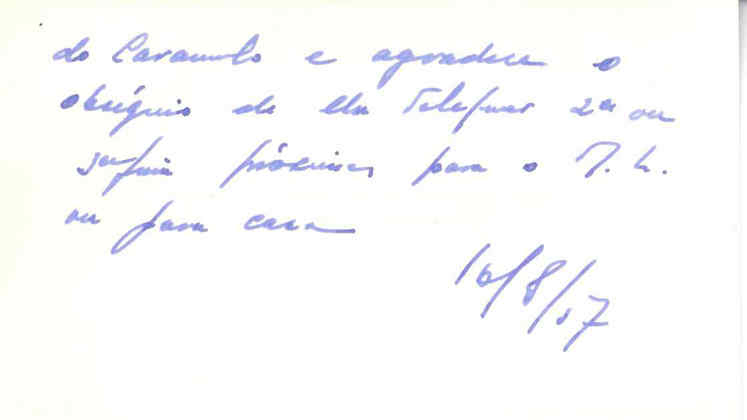 do Caramulo e agradece o
obséquio de lhe telefonar 2ª ou
3ª feira próximas para o T. L.
ou para casa
16/8/57